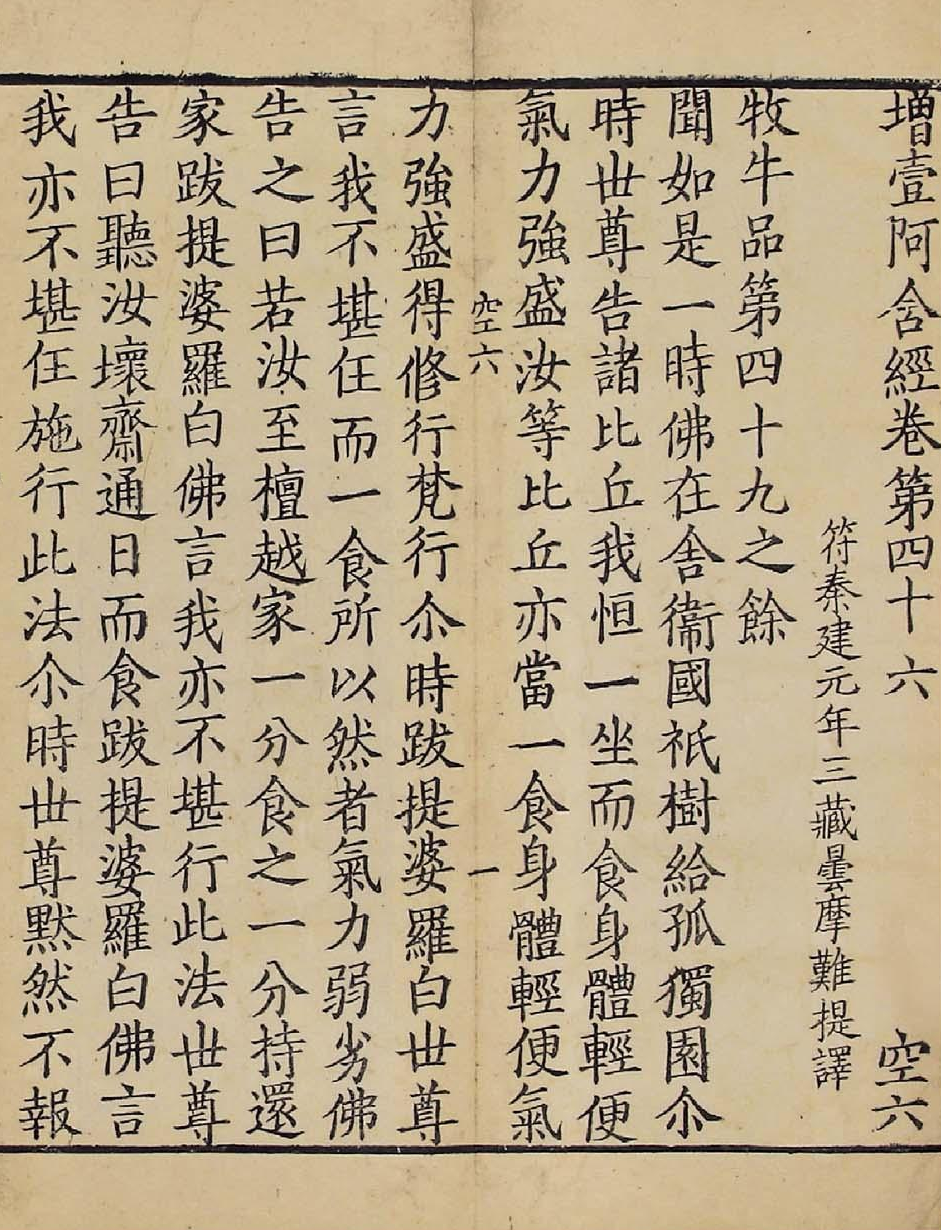 增壹阿含經卷第四十六　空六
符秦建元年三藏曇摩難提譯
牧牛品第四十九之餘
聞如是一時佛在舍衞國祇樹給孤獨園尒
時世尊告諸比丘我恒一坐而食身體輕便
氣力強盛汝等比丘亦當一食身體輕便氣
空六　一
力強盛得修行梵行尒時跋提婆羅白世尊
言我不堪任而一食所以然者氣力弱劣佛
告之曰若汝至檀越家一分食之一分持還
家跋提婆羅白佛言我亦不堪行此法世尊
告曰聽汝壞齋通日而食跋提婆羅白佛言
我亦不堪任施行此法尒時世尊默然不報